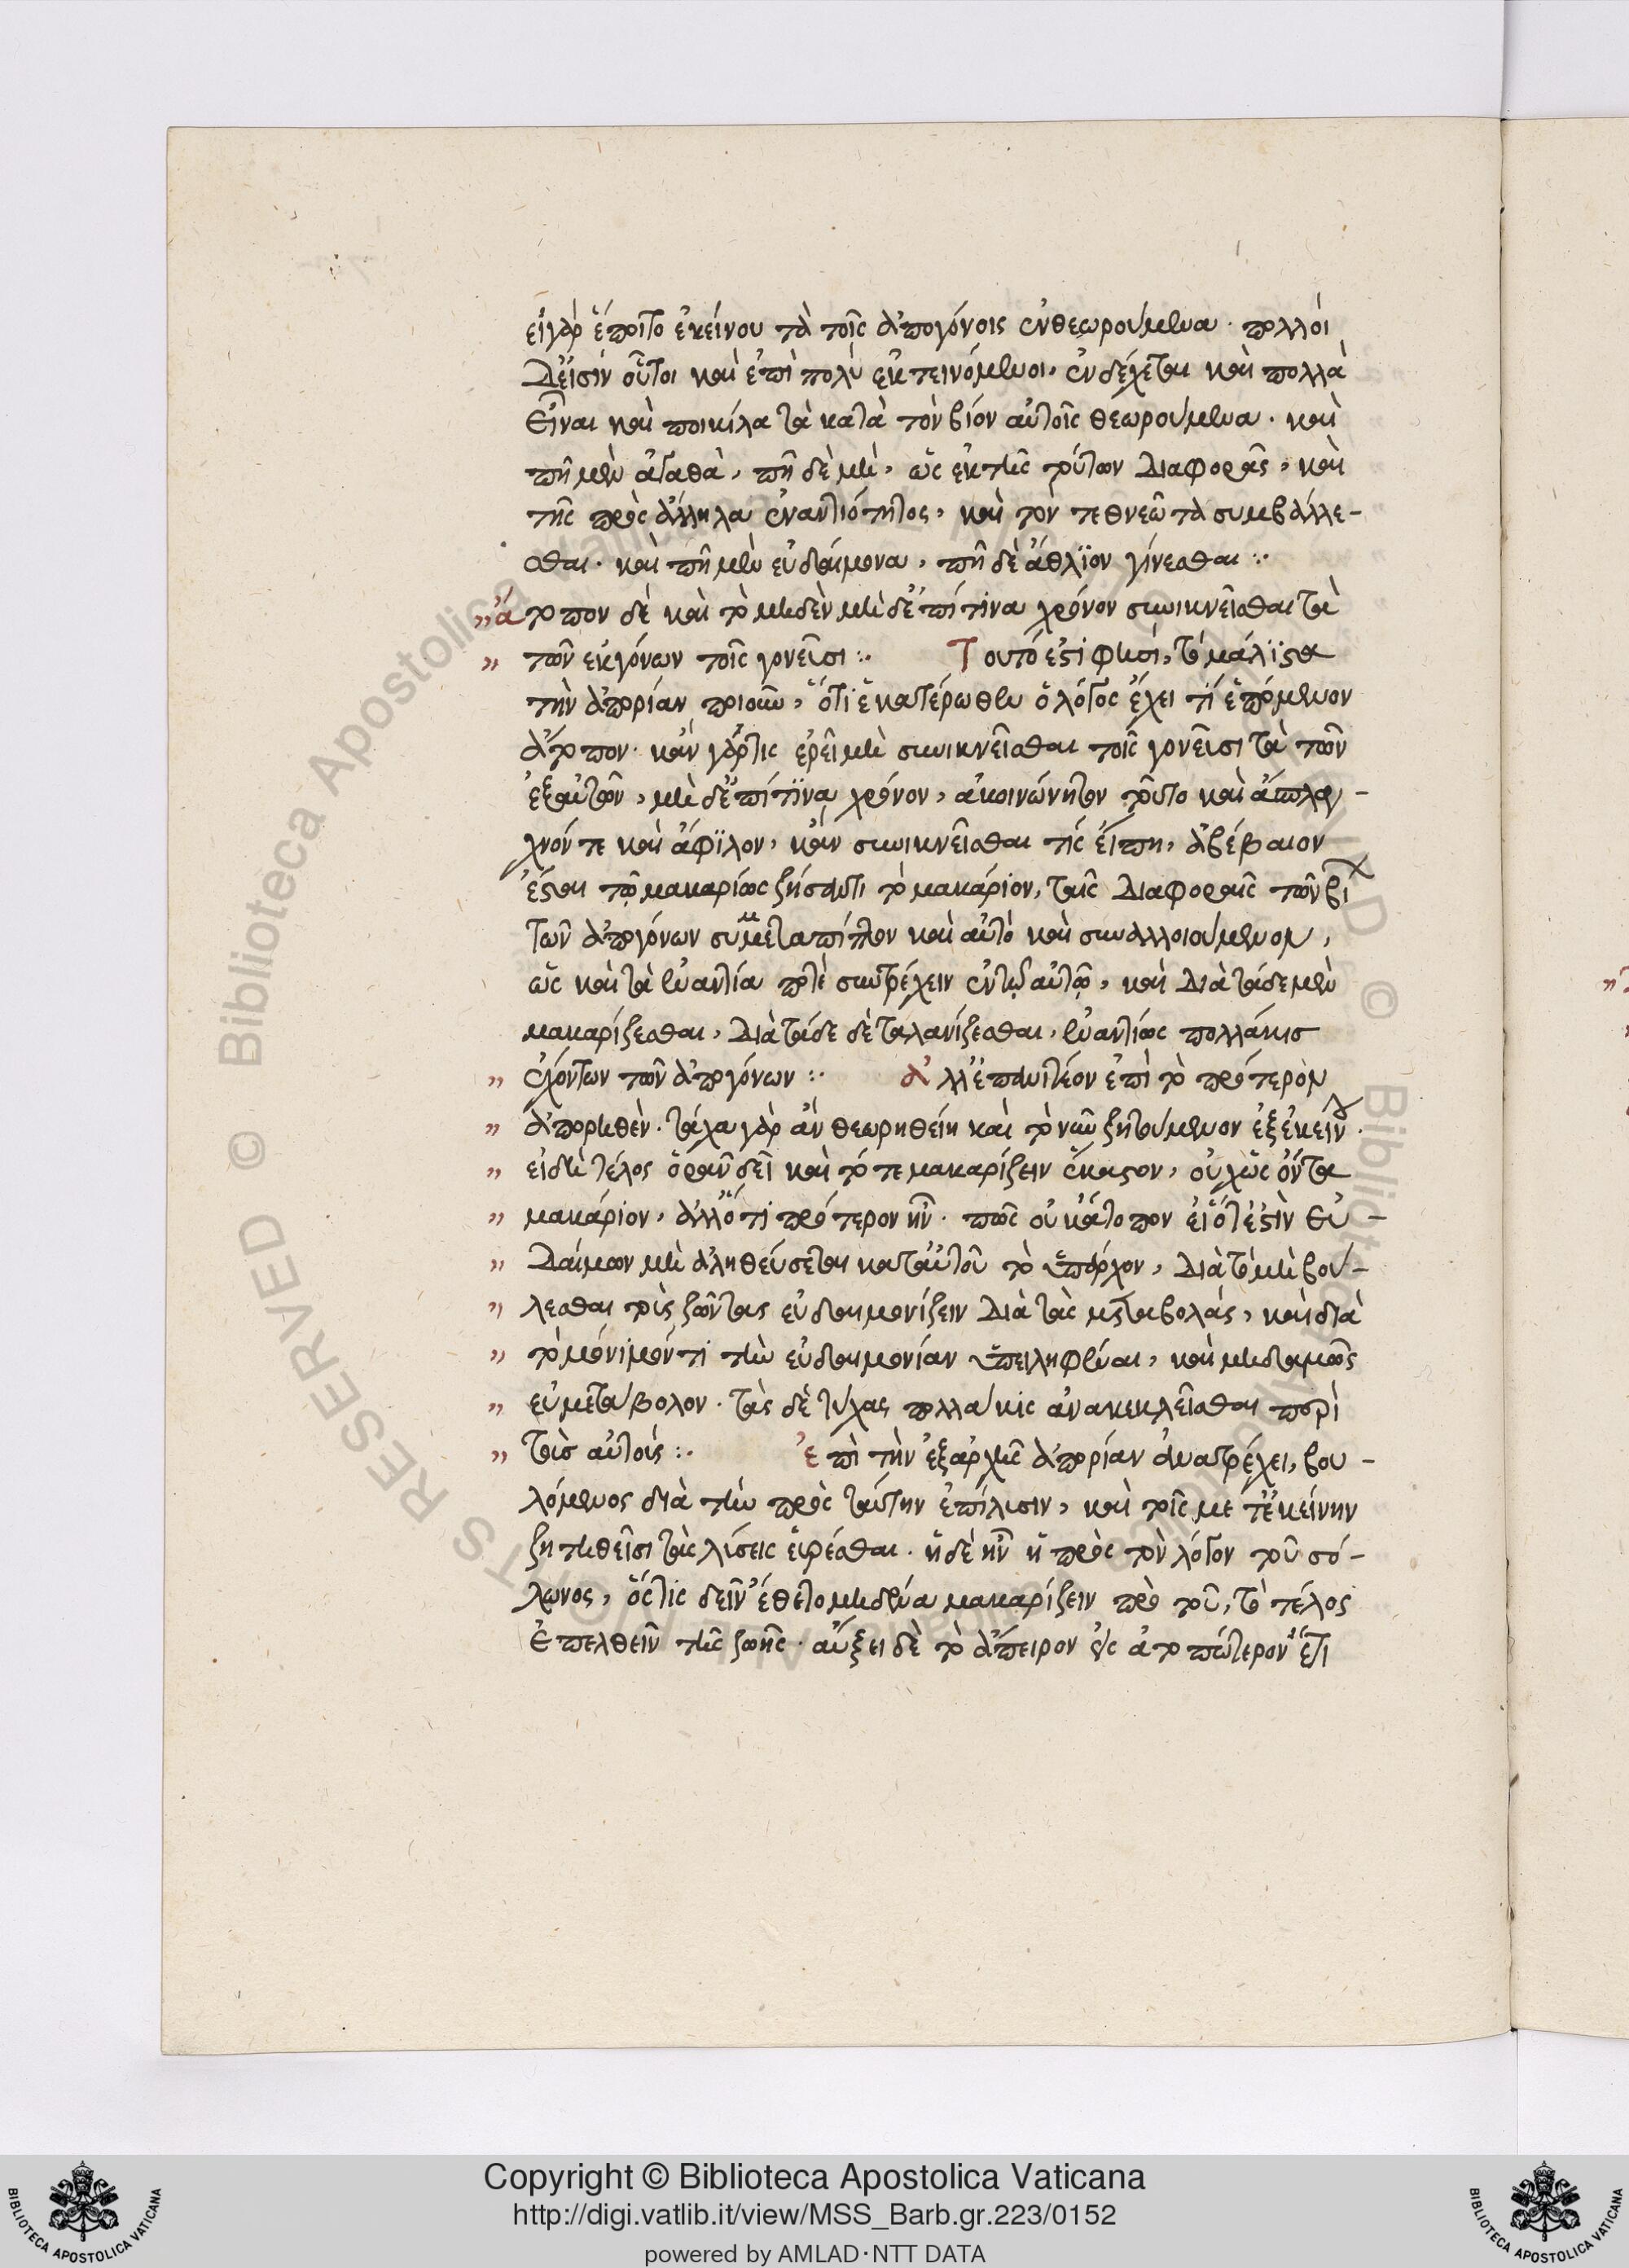 εἰ γὰρ ἕποιτο ἐκείνου τὰ τοῖς ἀπογόνοις ἐνθεωρούμενα· πολλοὶ
δ' εἰσὶν οὗτοι καὶ ἐπὶ πολὺ ἐκτεινόμενοι, ἐνδέχεται καὶ πολλὰ
εἶναι καὶ ποικίλα τὰ κατὰ τὸν βίον αὐτοῖς θεωρούμενα· καὶ
πῆ μὲν ἀγαθὰ, πῆ δὲ μὴ, ὡς ἐκ τῆς τούτων διαφορᾶς, καὶ
τῆς πρὸς ἄλληλα ἐναντιότητος, καὶ τὸν τεθνεῶτα συμβάλλε-
σθαι· καὶ πῆ μὲν εὐδαίμονα, πῆ δὲ ἄθλϊον γίνεσθαι :·
" ἄτοπον δὲ καὶ τὸ μηδὲν μηδ' ἐπί τινα χρόνον συνικνεῖσθαι τὰ
" τῶν ἐκγόνων τοῖς γονεῦσι :· Τουτό ἐστί φησι, τὸ μάλϊστα
τὴν ἀπορίαν ποιοῦν, ὅτι ἑκατέρωθεν ὁ λόγος ἔχει τί ἑπόμενον
ἄτοπον· κἂν γάρ τις ἐρεῖ μὴ συνικνεῖσθαι τοῖς γονεῦσι τὰ τῶν
ἐξ αὐτῶν, μὴ δ' ἐπί τϊνα χρόνον, ἀκοινώνητον τοῦτο καὶ ἄσπλαγ-
χνόν τε καὶ ἄφϊλον, κἂν συνικνεῖσθαι τίς εἴπη, ἀβέβαιον
ἔσται τῷ μακαρίως ζήσαντι τὸ μακάριον, ταῖς διαφοραῖς τῶν βί
τῶν ἀπογόνων συμμεταπίπτον καὶ αὐτὸ καὶ συναλλοιούμενον,
ὡς καὶ τὰ ἐναντία ποτὲ συντρέχειν ἐν τῷ αὐτῷ, καὶ διὰ τάδε μὲν
μακαρίζεσθαι, διὰ τάδε δὲ ταλανίζεσθαι, ἐναντίως πολλάκισ
ἐχόντων τῶν ἀπογόνων :·
" ἀλλ' ἐπανιτέον ἐπὶ τὸ πρότερὸν
" ἀπορηθέν· τάχα γὰρ ἂν θεωρηθείη καὶ τὸ νῦν ζητούμενον ἐξ ἐκείν·
" εἰ δὴ τέλος ὁρᾶν δεῖ καὶ τότε μακαρίζειν ἕκαστον, οὐχ ὡς ὄντα
" μακάριον, ἀλλ' ὅτι πρότερον ἦν· πῶς οὐκ ἄτοπον εἰ ὅτ' ἐστὶν εὐ-
" δαίμων μὴ ἀληθεύσεται κατ' αὐτοῦ τὸ ὑπάρχον, διὰ τὸ μὴ βού-
" λεσθαι τοὺς ζῶντας εὐδαιμονίζειν διὰ τὰς μεταβολάς, καὶ διὰ
" τὸ μόνιμόν τι τὴν εὐδαιμονίαν ὑπειληφέναι, καὶ μηδαμῶς
" εὐμετάβολον· τὰς δὲ τύχας πολλάκις ἀνακυκλεῖσθαι περὶ
" τοὺσ αὐτούς :· ἐπὶ τὴν ἐξ ἀρχῆς ἀπορίαν ἀνατρέχει, βου-
λόμενος διὰ τὴν πρὸς ταύτην ἐπίλυσιν, καὶ τοῖς μετ' ἐκείνην
ζητηθεῖσι τὰς λύσεις εὑρέσθαι· ἡ δὲ ἦν ἡ πρὸς τὸν λόγον τοῦ σό-
λωνος, ὅςτις δεῖν ἔθετο μηδένα μακαρίζειν πρὸ τοῦ, τὸ τέλος
ἐπελθεῖν τῆς ζωῆς· αὔξει δὲ τὸ ἄπειρον ὡς ἀτοπώτερον ἔτι
Copyright © Biblioteca Apostolica Vaticana
http://digi.vatlib.it/view/MSS_Barb.gr.223/0152
powered by AMLAD·NTT DATA